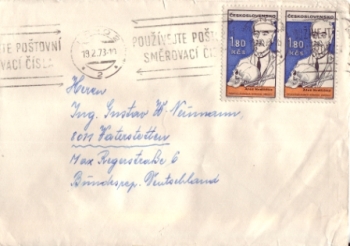 POUŽÍVEJTE POŠTOVNÍ
SMĚROVACÍ ČÍSLA
19.2.73
ČESKOSLOVENSKO
1,80
KČS
ČESKOSLOVENSKO
1,80
KČS
Herrn
Ing. Gustav W. Neumann,
8011 Vaterstetten
Max Regerstraße 6
Bundesrep. Deutschland